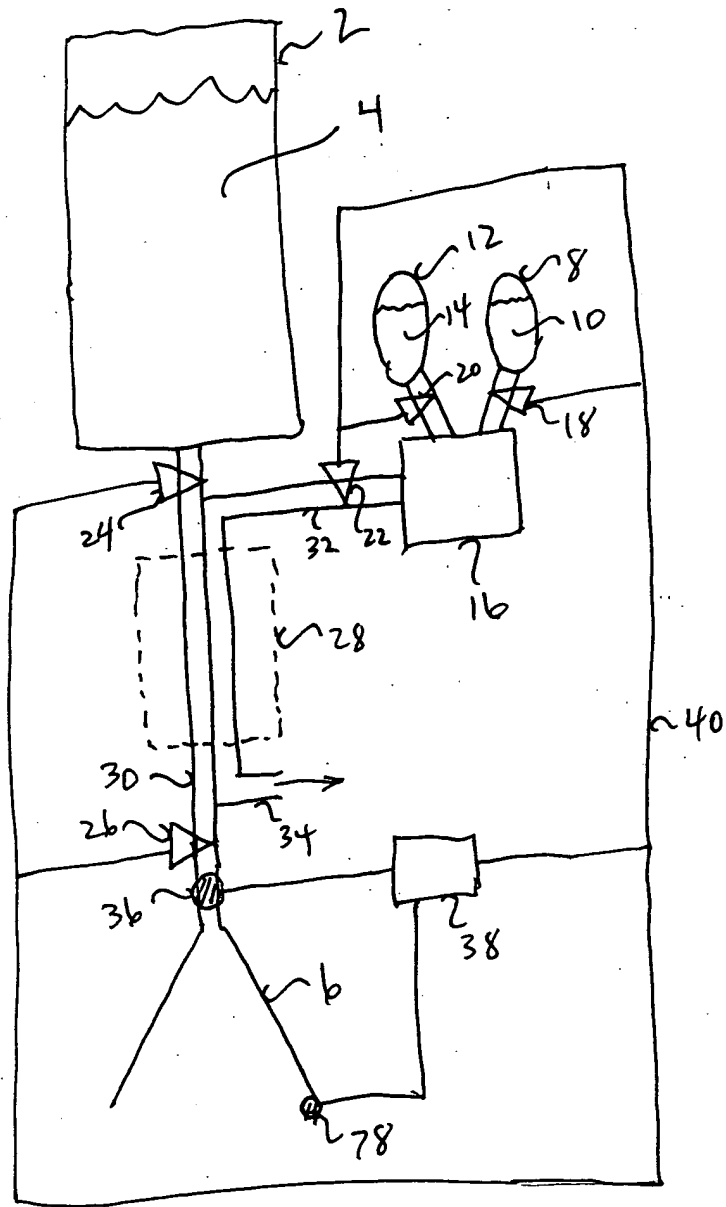 2
4
12
8
14
10
20
18
24
32
22
16
28
40
30
26
34
36
38
6
78